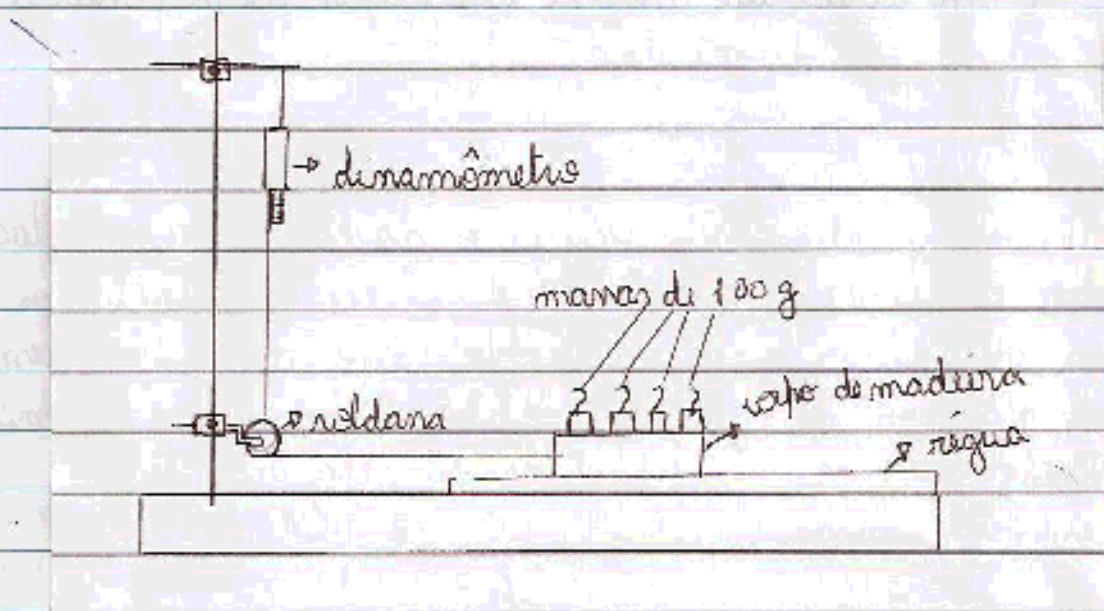 dinamômetro
massas de 100 g
roldana
corpo de madeira
régua